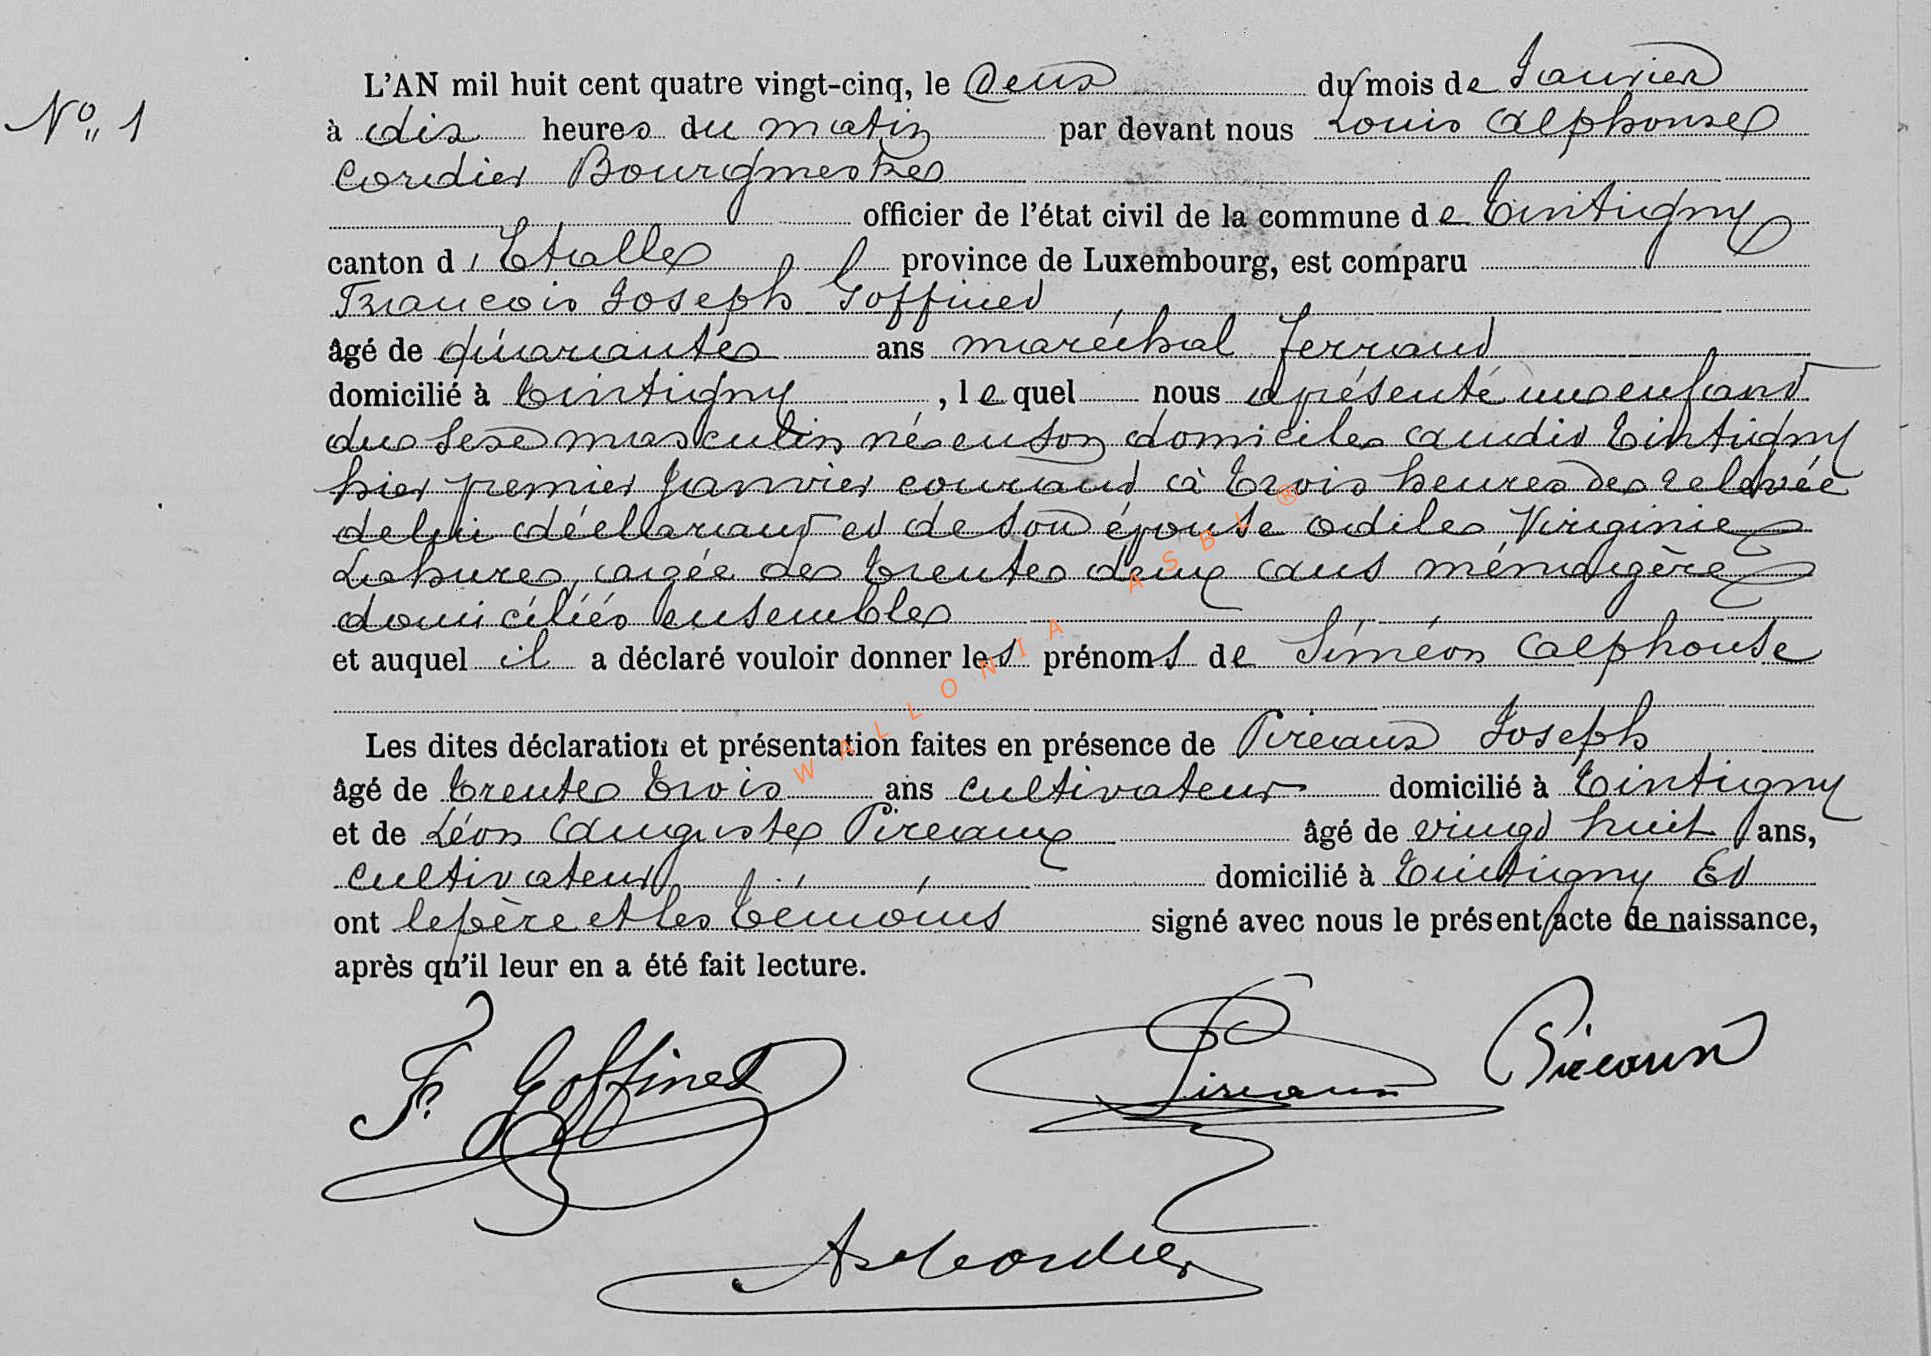 No 1
L'AN mil huit cent quatre vingt-cinq, le Deux du mois de Janvier
à dix heures du matin par devant nous Louis Alphonse
Cordier Bourgmestre
officier de l'état civil de la commune de Tintigny
canton d'Etalle province de Luxembourg, est comparu
François Joseph Goffinet
âgé de quarante ans maréchal ferrant
domicilié à Tintigny, lequel nous a présenté un enfant
du sexe masculin né en son domicile audit Tintigny
hier premier Janvier courant à trois heures de relevée
de lui déclarant et de son épouse Odile Virginie
Lahure, agée de trente deux ans ménagère
domiciliés ensemble
et auquel il a déclaré vouloir donner les prénoms de Siméon Alphonse
Les dites déclaration et présentation faites en présence de Pireaux Joseph
âgé de trente trois ans cultivateur domicilié à Tintigny
et de Léon Auguste Pireaux âgé de vingt huit ans,
cultivateur domicilié à Tintigny Et
ont le père et les temoins signé avec nous le présent acte de naissance,
après qu'il leur en a été fait lecture.
F. Goffinet Pireaux Pireaux
Cordier
WALLONIA ASBL ®